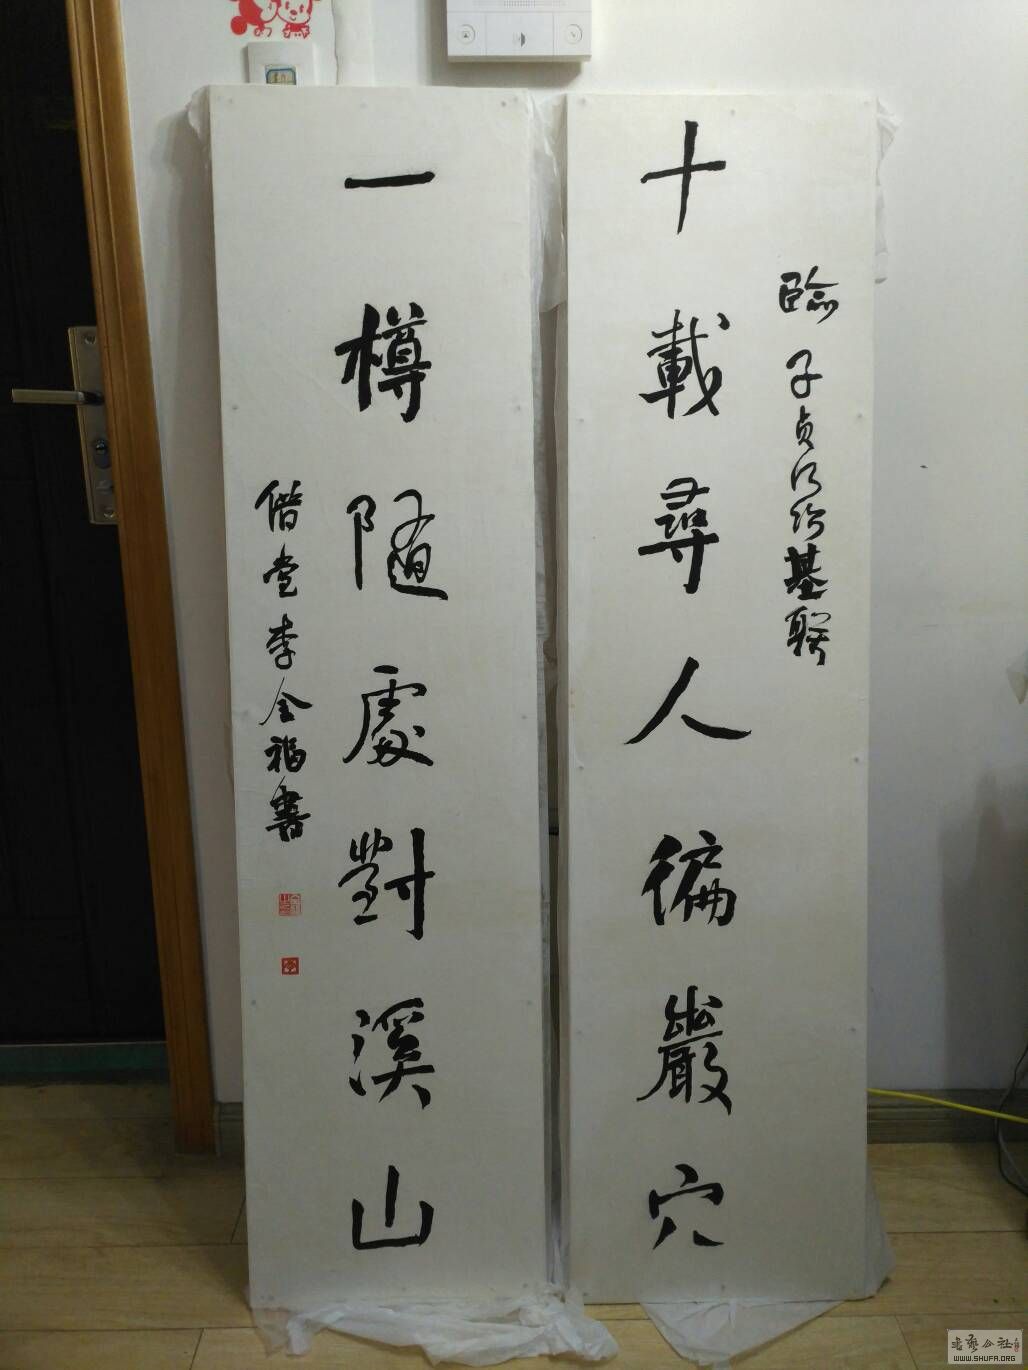 十載尋人徧巖穴
臨子貞行绍基聯
一樽隨處對溪山
偕堂李金福書
WWW.SHUFA.ORG